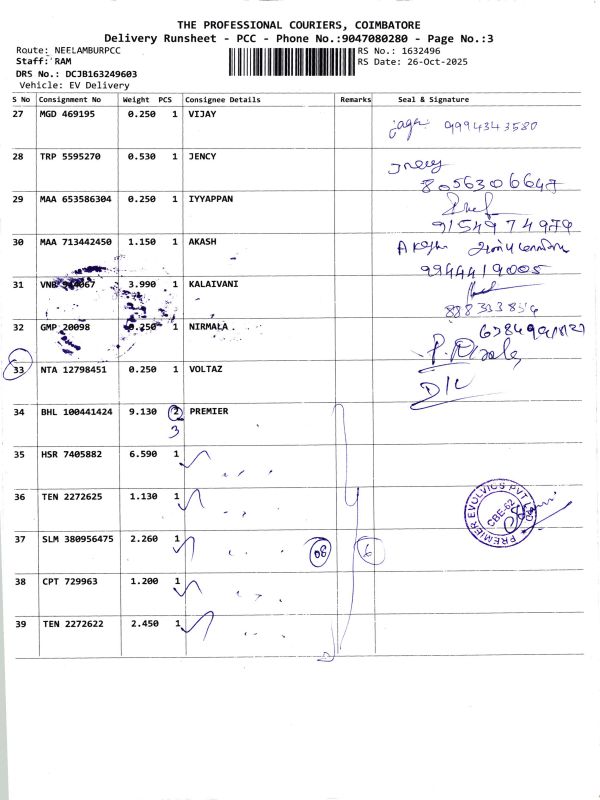 THE PROFESSIONAL COURIERS, COIMBATORE
Delivery Runsheet - PCC - Phone No.:9047080280 - Page No.:3
Route: NEELAMBURPCC RS No.: 1632496
Staff: RAM RS Date: 26-Oct-2025
DRS No.: DCJB163249603
Vehicle: EV Delivery
S No Consignment No Weight PCS Consignee Details Remarks Seal & Signature
27 MGD 469195 0.250 1 VIJAY
9994343580
28 TRP 5595270 0.530 1 JENCY
Jency
8056306647
29 MAA 653586304 0.250 1 IYYAPPAN
9154974979
30 MAA 713442450 1.150 1 AKASH
Akash
9944419005
31 VNB 3.990 1 KALAIVANI
32 GMP 20098 0.250 1 NIRMALA
33 NTA 12798451 0.250 1 VOLTAZ
D/L
34 BHL 100441424 9.130 2 PREMIER
3
35 HSR 7405882 6.590 1 " "
36 TEN 2272625 1.130 1 " "
PREMIER EVOLVICS PVT LTD
CBE-62
37 SLM 380956475 2.260 1 " " 08 6
38 CPT 729963 1.200 1 " "
39 TEN 2272622 2.450 1 " "